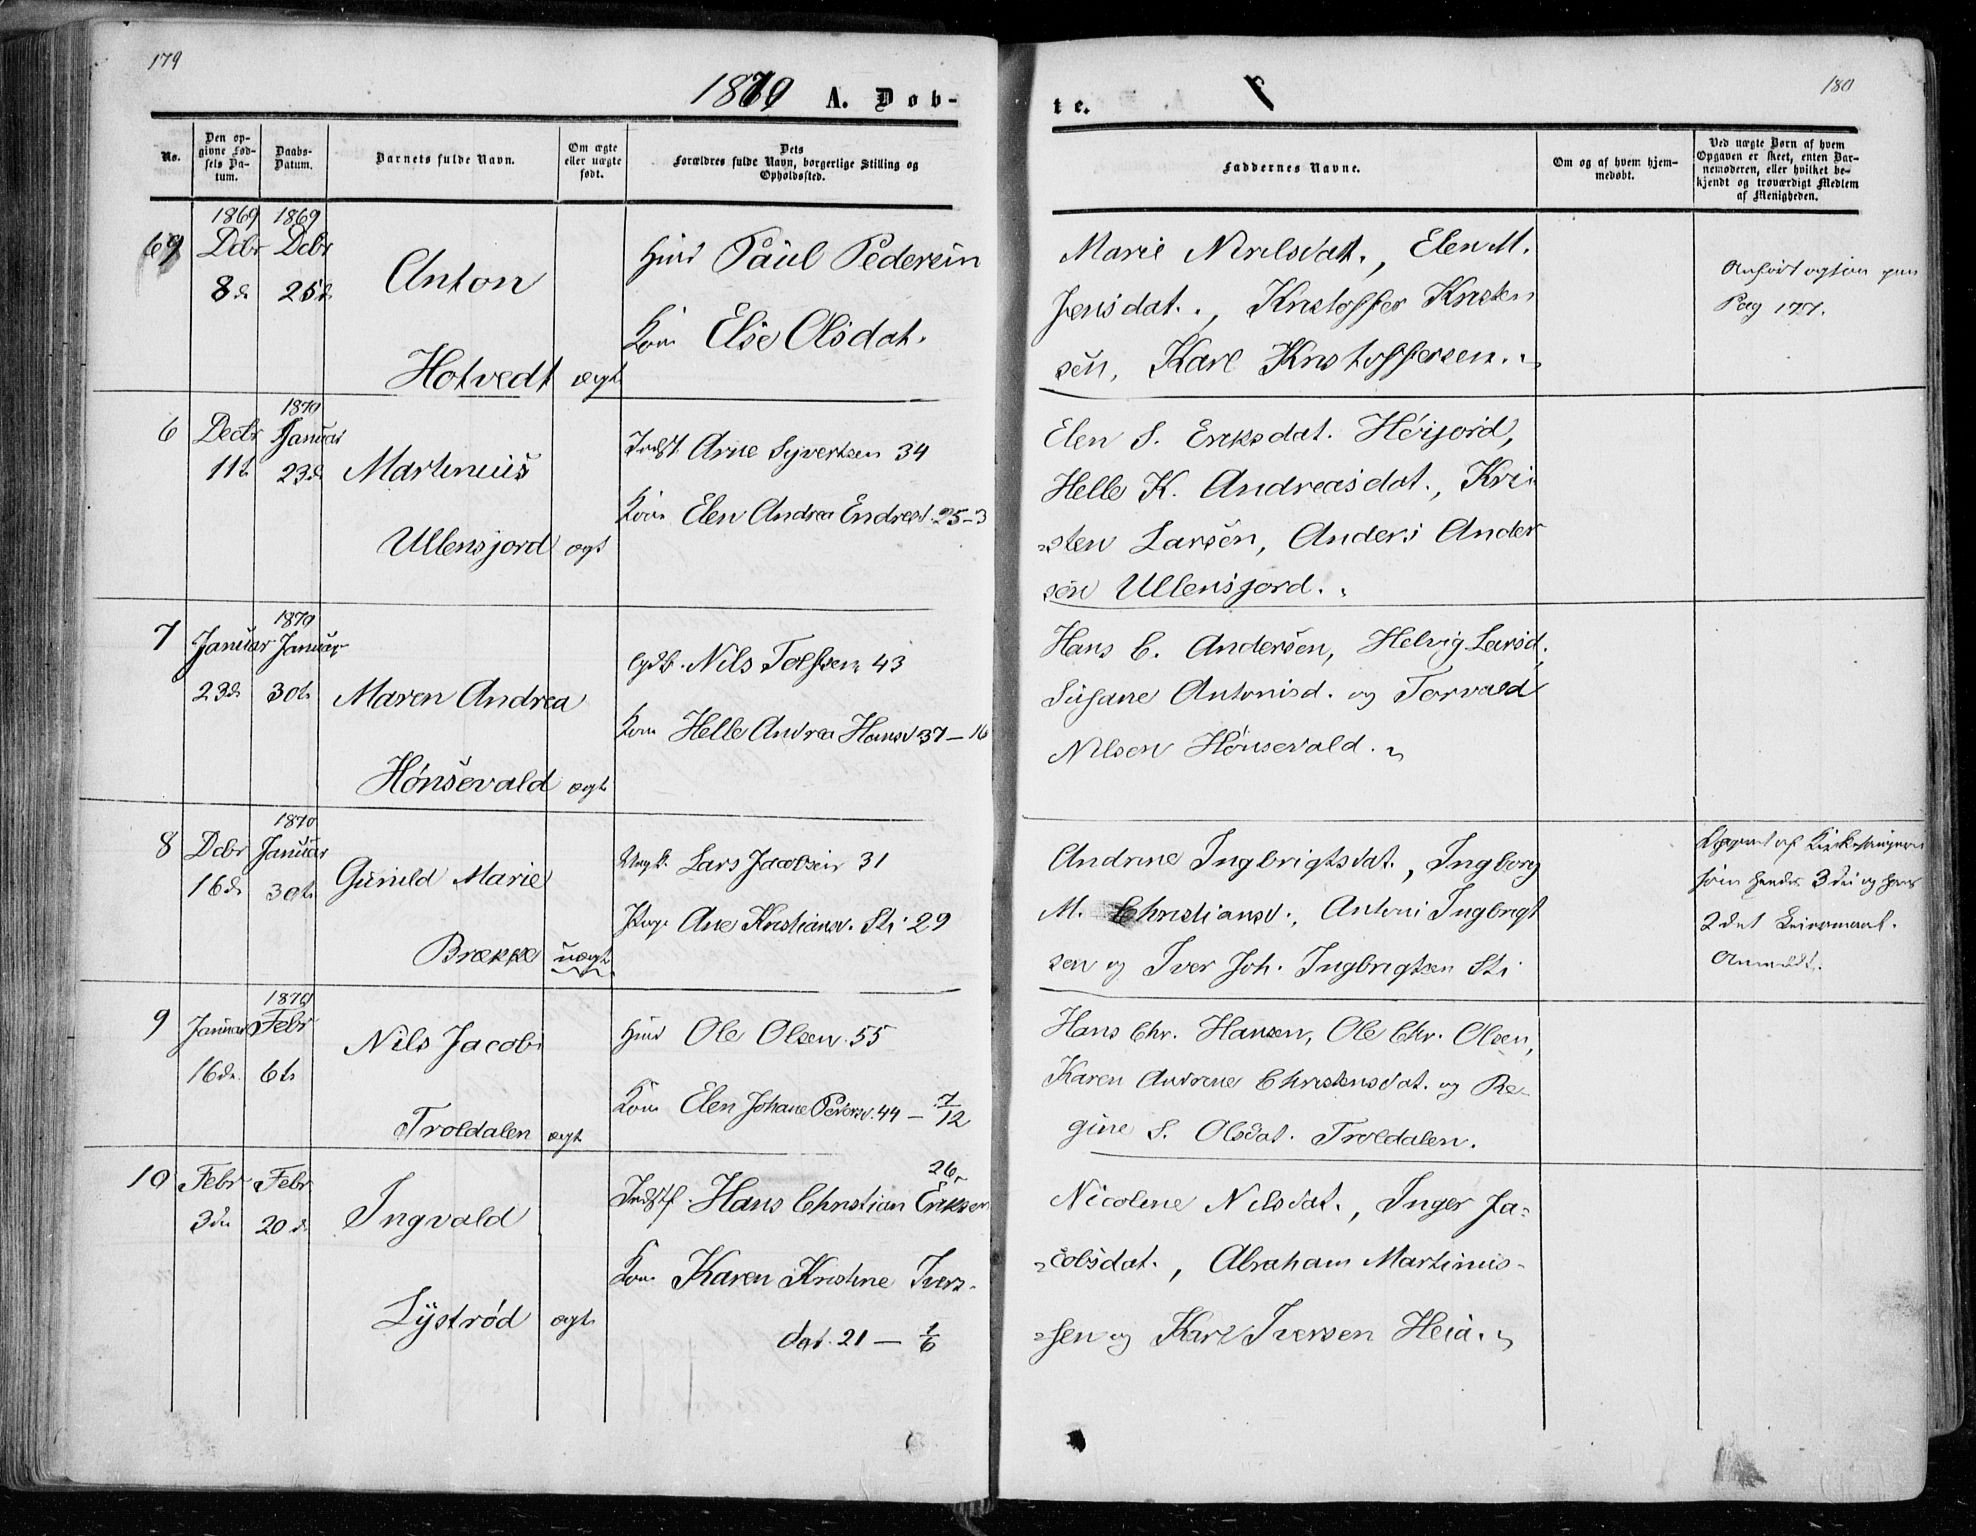 179
1870 A. Døb-
No.
Den op-
givne Fød-
sels Da-
tum.
Daabs-
Datum.
Barnets fulde Navn.
Om ægte
eller uægte
født.
Dets
Forældres fulde Navn, borgerlige Stilling og
Opholdssted.
69
1869
Dcbr
8de
1869
Dcbr
Anton
Hotvedt
ægt
Paul Pedersen
Kone Else Olsdat.
6
Decbr
11te
1870
Januar
23de
Martinius
Ullensjord
ægt
Arne Syvertsen 34
Kone Elen Andrea Endresd. 25-3
7
Januar
23de
1870
Januar
30te
Maren Andrea
Hønsevald
ægt
Gdb. Nils Tolfsen 43
Kone Helle Andrea Hansd 37 - 16
8
Dcbr
16de
1870
Januar
30te
Gunild Marie
Brække
uægt
Ungk. Lars Jacobsen 31
Pige Ane Kristiansd. Sti 29
9
Januar
16de
1870
Febr
6te
Nils Jacob
Troldalen
ægt
Ole Olsen 55
Kone Elen Johane Pedersd. 44 - 7/12
10
Febr
3die
Febr
20de
Ingvald
Lystrød
ægt
26
Indstf. Hans Christian Eriksen
Kone Karen Kristine Ivers-
dat. 21 - 1/6
180
te.
Faddernes Navne.
Om og af hvem hjem-
medøbt.
Ved uægte Børn af hvem
Opgaven er skeet, enten Bar-
nemoderen, eller hvilket be-
kjendt og troværdigt Medlem
af Menigheden.
Marie Nirilsdat., Elen M.
Jensdat., Kristoffer Kristen
sen, Karl Kristoffersen.
Anført ogsaa paa
Pag 177.
Elen S. Eriksdat. Høijord,
Helle K. Andreasdat., Kri-
sten Larsen, Anders Ander
sen Ullensjord.
Hans C. Andersen, Helvig Larsd.,
Susane Antonisd. og Torvald
Nilsen Hønsevald.
Andrine Ingbrigtsdat., Ingborg
M. Christiansd., Antoni Ingbrigt
sen og Iver Joh. Ingbrigtsen Sti
Opgivet af Kirkesangeren
som hendes 3die og hans
2det Leiermaal.
Anmeldt.
Hans Chr. Hansen, Ole Chr. Olsen,
Karen Andrine Christensdat. og Re-
gine S. Olsdat. Troldalen.
Nicoline Nilsdat., Inger Ja-
cobsdat., Abraham Martinius-
sen og Karl Iversen Heia.